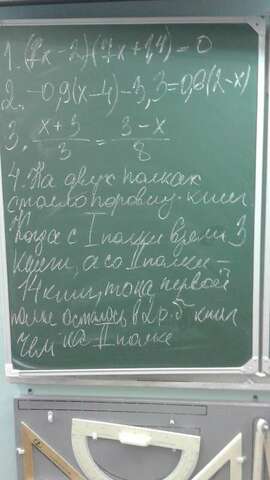 1. (7x-2)(7x+1,4)=0
2. -0,9(x-4)-3,3=0,8(2-x)
3. x+3/3 = 3-x/8
4. На двух полках
стояло поровну книг.
Когда с I полки взяли 3
книги, а со II полки -
14 книг, то на первой
полке осталось в 2 р. б книг
чем на II полке